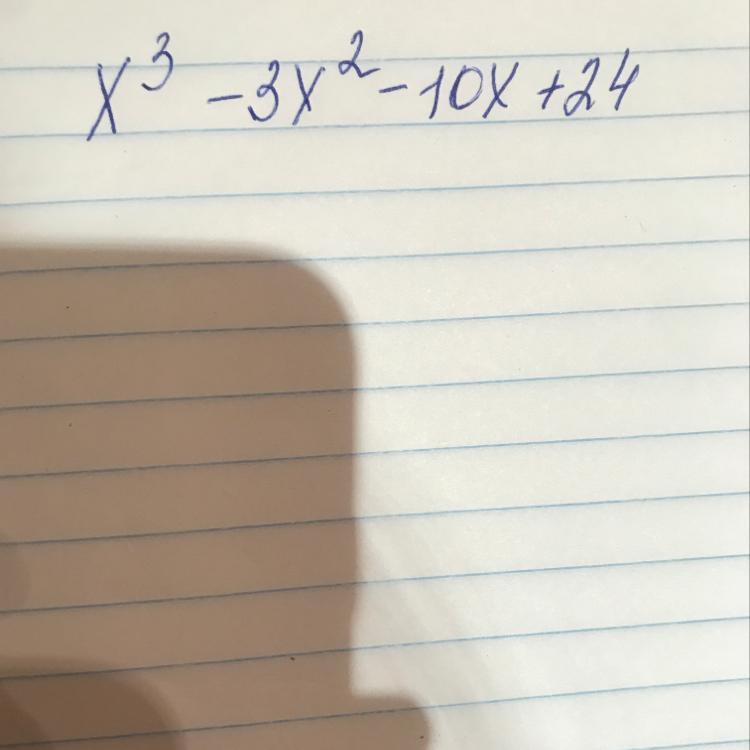 x³ -3x² -10x +24